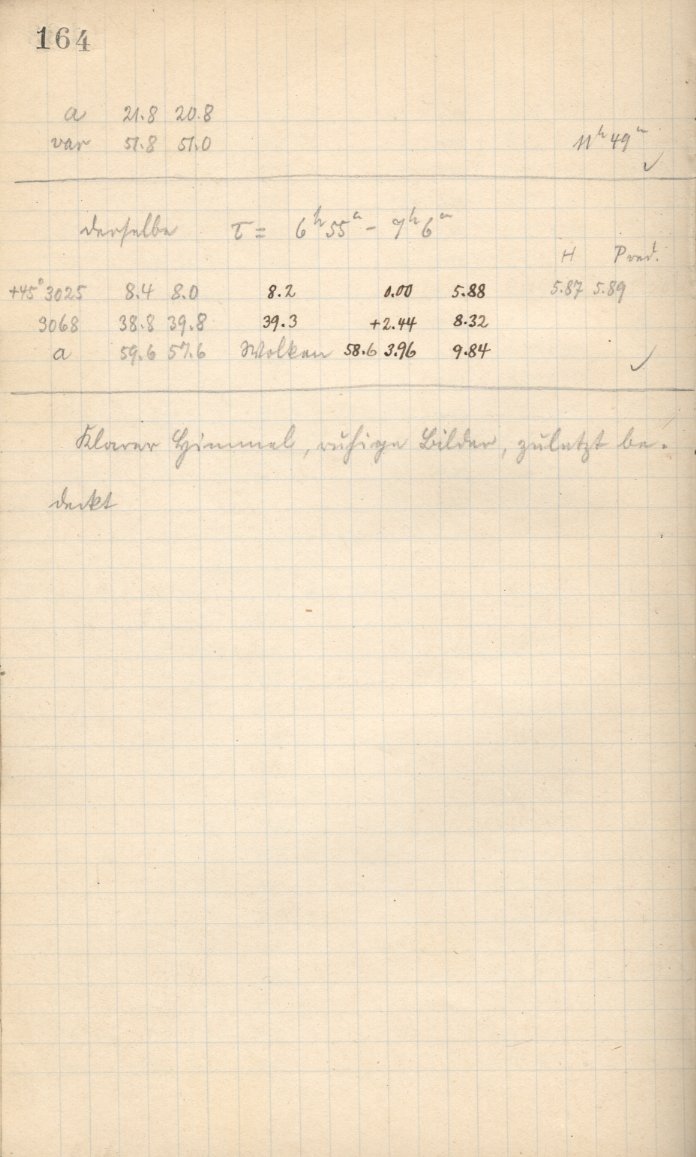 164
a 21.8 20.8
var 51.8 51.0 11ʰ 49ᵐ ✓
derselbe τ = 6ʰ 55ᵐ - 7ʰ 6ᵐ
H Pred.
+45° 3025 8.4 8.0 8.2 0.00 5.88 5.87 5.89
3068 38.8 39.8 39.3 +2.44 8.32
a 59.6 57.6 Wolken 58.6 3.96 9.84 ✓
Klarer Himmel, ruhige Bilder, zuletzt be-
deckt